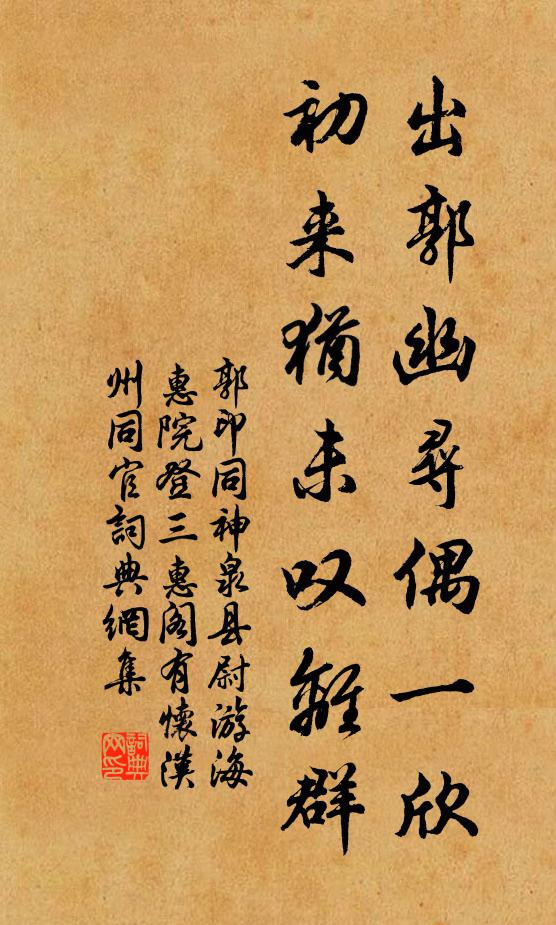 出郭幽尋偶一欣
初来猶未叹離群
郭印同神泉县尉游海
惠院登三惠阁有懷漢
州同官詞典網集
詞典网印